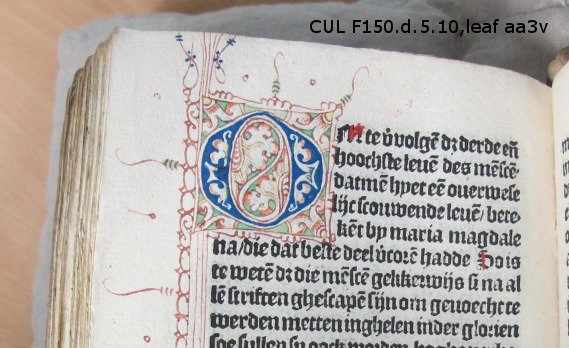 CUL F150.d.5.10,leaf aa3v
OM te v̄volgē dz derde eñ
hoochste leuē des mēscē
datmē hyet eē ouerwese
lijc scouwende leuē/ bete
kēt by maria magdale
na/die dat beste deel vcorē hadde So is
te wetē dz die mēscē gekkerwijs si na al
lē scriften ghescapē sijn om geuoecht te
werden metten inghelen inder glorien